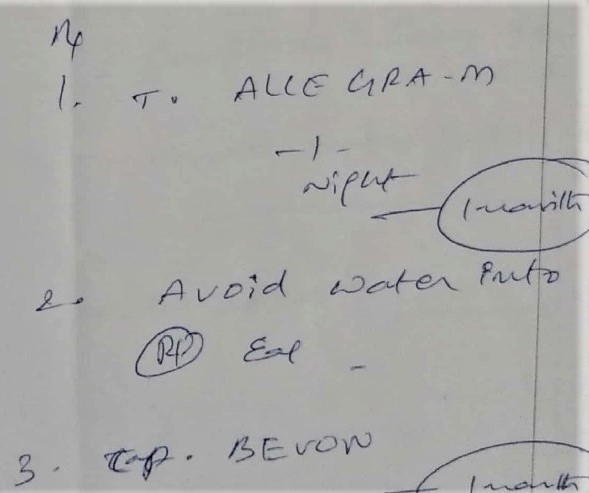 Rx
1. T. ALLEGRA-M
-1-
night
1 month
2. Avoid water into
(Rt) Ear -
3. Cap. BEVON
1 month